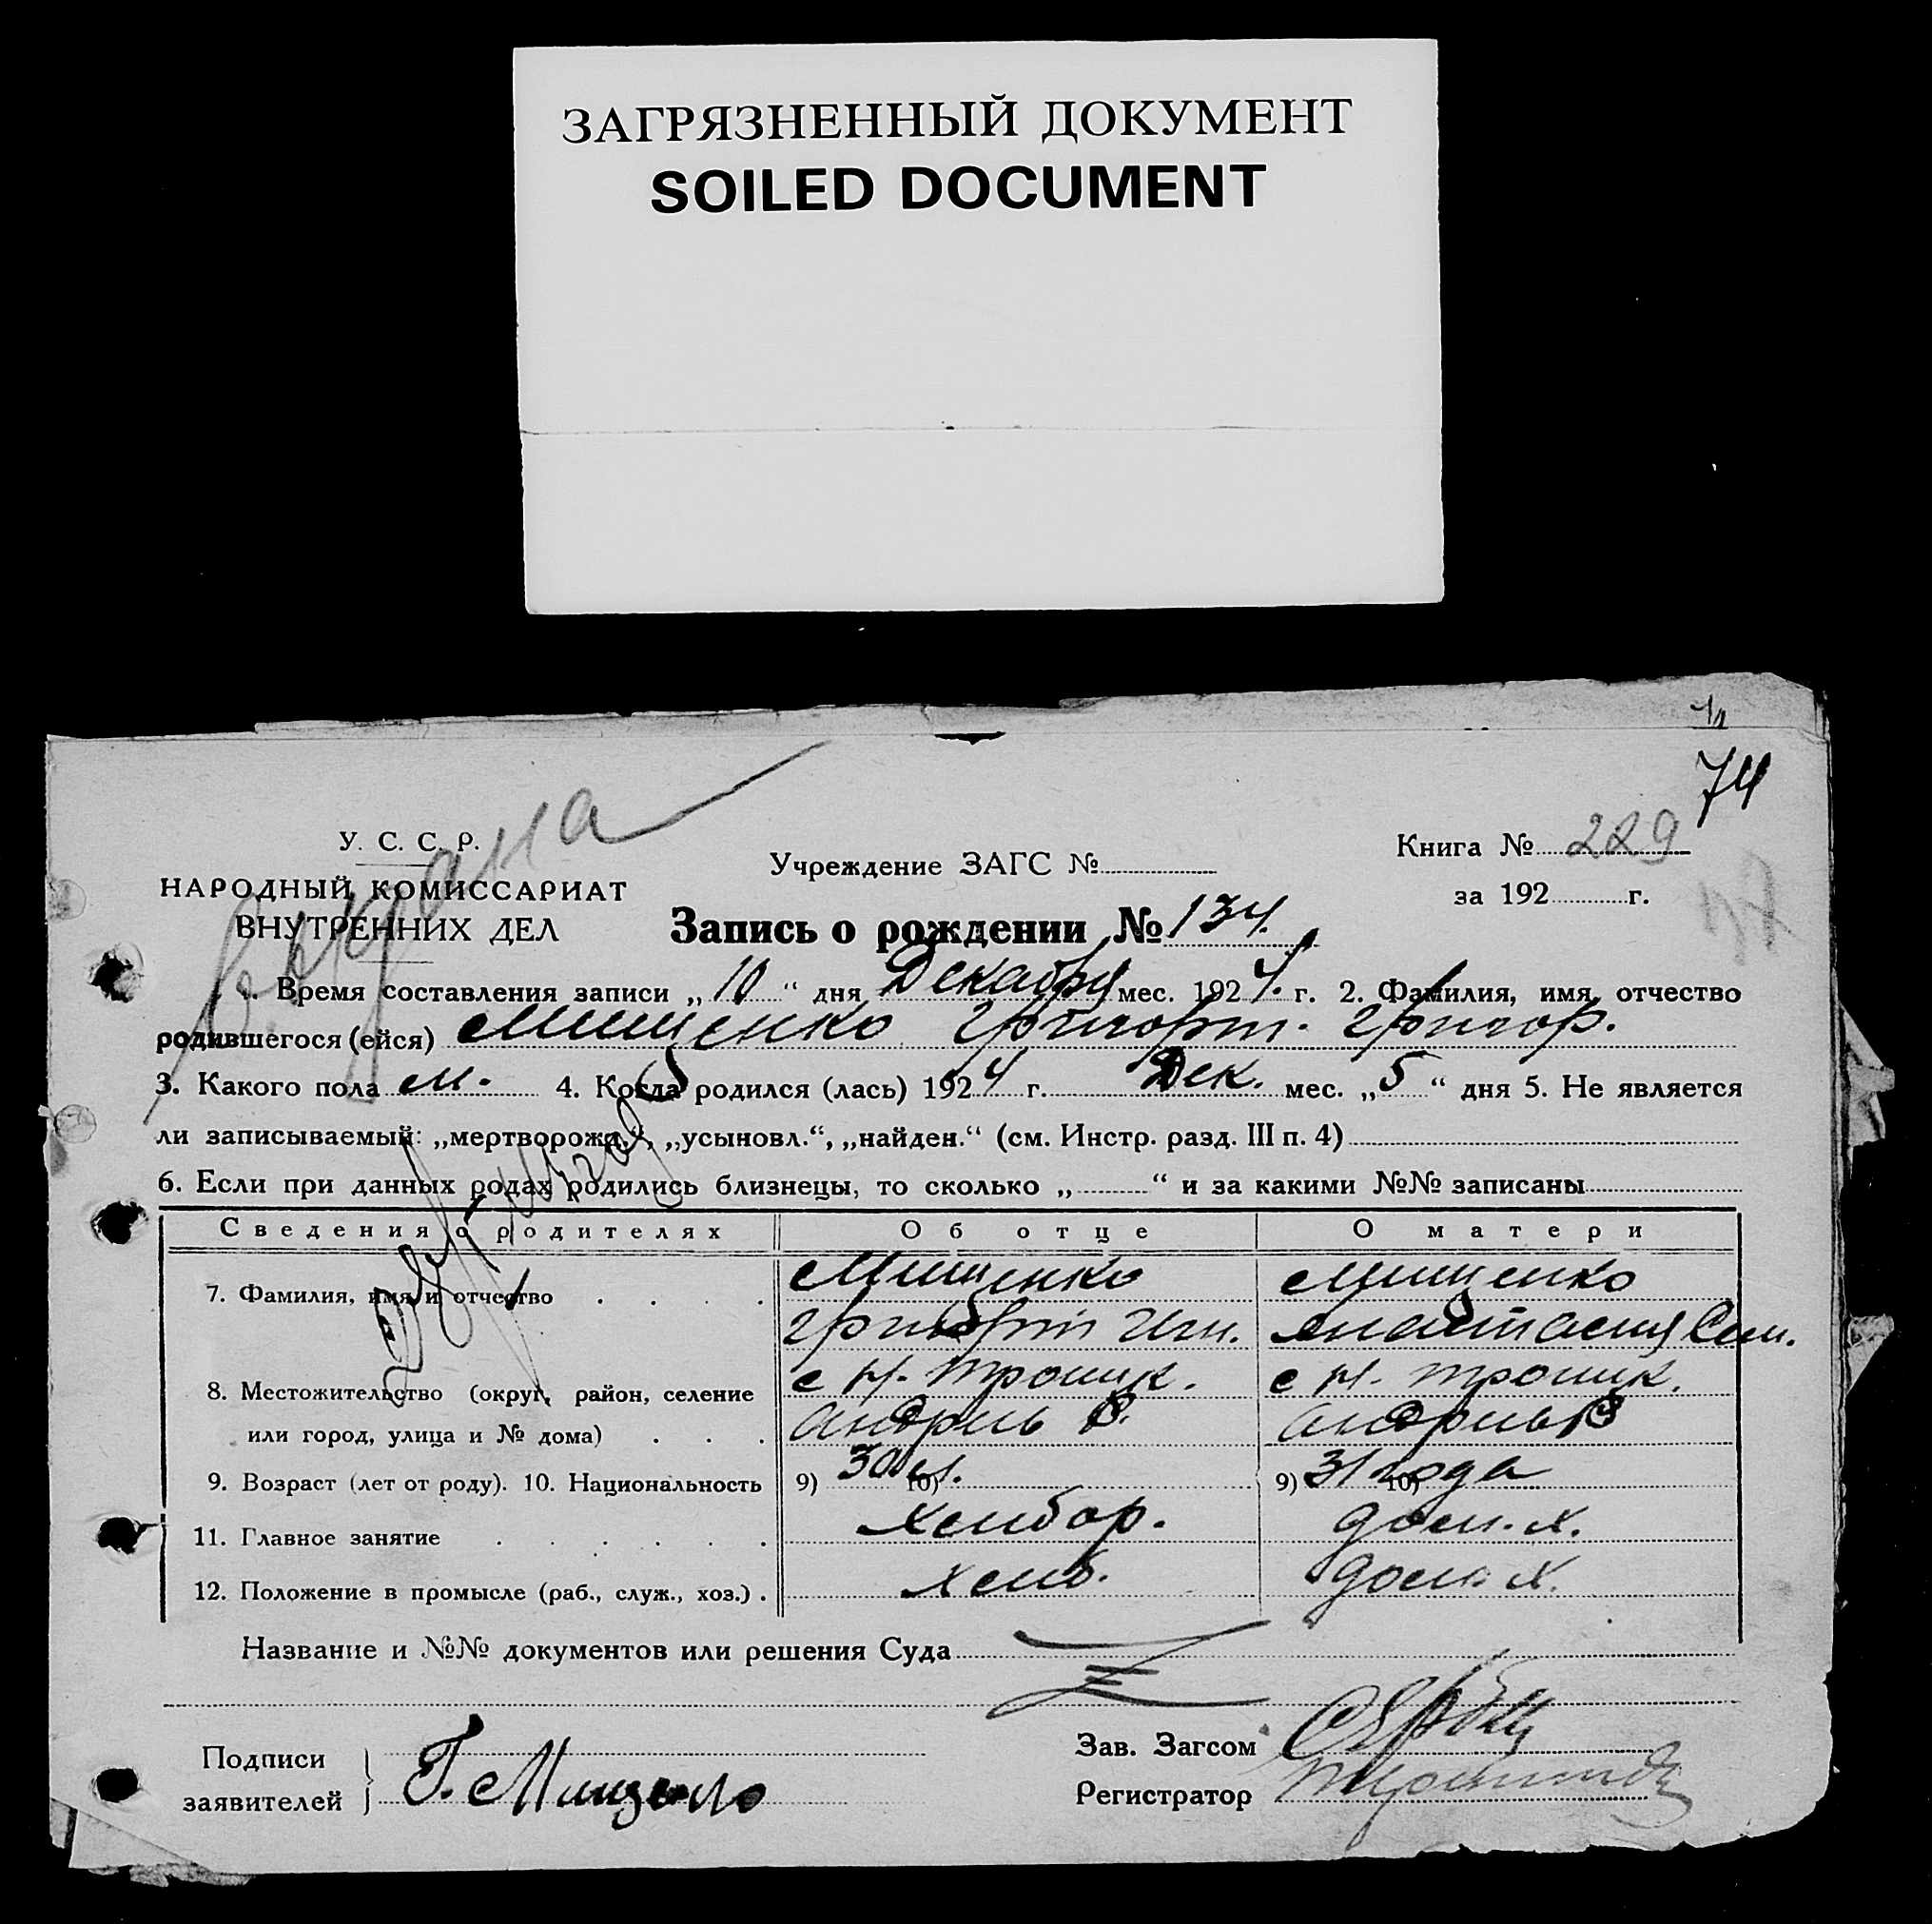 ЗАГРЯЗНЕННЫЙ ДОКУМЕНТ
SOILED DOCUMENT
74
У. С. С. Р.
НАРОДНЫЙ КОМИССАРИАТ
ВНУТРЕННИХ ДЕЛ
Учреждение ЗАГС №
Книга № 229
за 192 г.
Запись о рождении № 134.
1. Время составления записи „10“ дня Декабря мес. 1924. г. 2. Фамилия, имя, отчество
родившегося (ейся) Мищенко Григорий. Григор.
3. Какого пола м. 4. Когда родился (лась) 1924 г. Дек. мес. „5“ дня 5. Не является
ли записываемый: „мертворожд.“, „усыновл.“, „найден.“ (см. Инстр. разд. III п. 4)
6. Если при данных родах родились близнецы, то сколько „ “ и за какими №№ записаны
Сведения о родителях Об отце О матери
7. Фамилия, имя и отчество Мищенко Мищенко
Григорий Анастасия Сем.
8. Местожительство (округ, район, селение с Н. Троицк. с Н. Троицк.
или город, улица и № дома)
9. Возраст (лет от роду). 10. Национальность 9) 30 л. 10) 9) 31 года 10)
11. Главное занятие хлебор. дом. х.
12. Положение в промысле (раб., служ., хоз.) хлеб. дом. х.
Название и №№ документов или решения Суда
Подписи
заявителей Г. Мищенко
Зав. Загсом
Регистратор